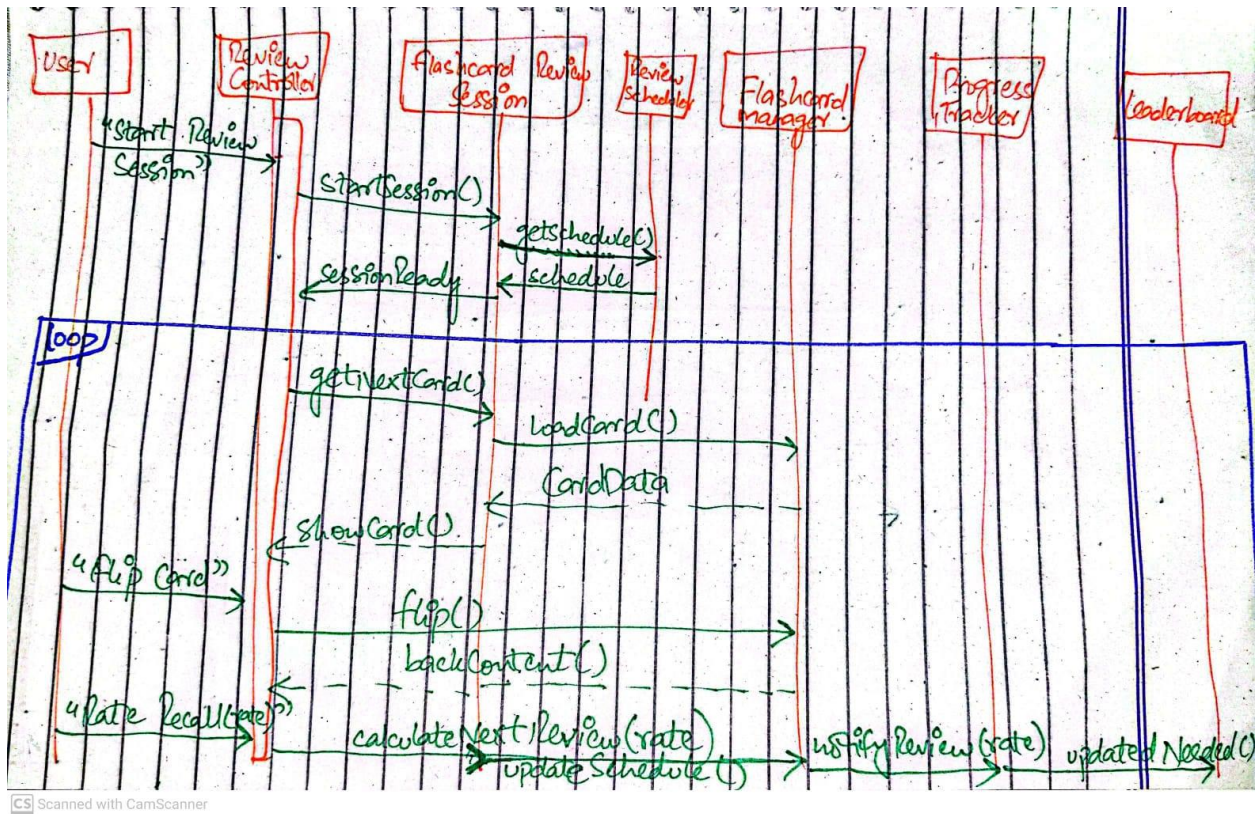 User
Review
Controller
Flashcard Review
Session
Review
Scheduler
Flashcard
manager
Progress
Tracker
Leaderboard
"Start Review
Session"
startSession()
getschedule()
schedule
sessionReady
loop
getNextCard()
loadCard()
CardData
showCard()
"flip Card"
flip()
backContent()
"Rate Recall(rate)"
calculateNextReview(rate)
updateSchedule()
notifyReview(rate)
updatedNeeded()
CS Scanned with CamScanner